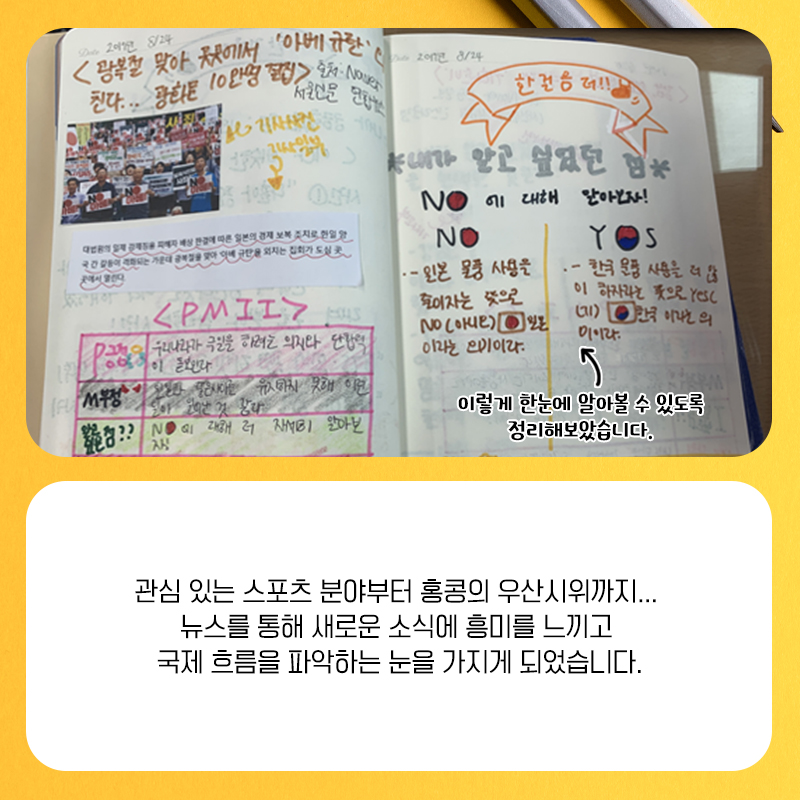 Date 2019년 8/24
<광복절 맞아 곳곳에서 '아베 규탄'
친다... 광화문 10만명 결집>
출처: Naver
서울신문
기사사진
기사일부
대법원의 일제 강제징용 피해자 배상 판결에 따른 일본의 경제 보복 조치로 한일 양
국 간 갈등이 격화되는 가운데 광복절을 맞아 '아베 규탄'을 외치는 집회가 도심 곳
곳에서 열린다.
<PMII>
P긍정
우리나라가 극일을 하려는 의지와 단합력
이 돋보인다
M부정
유지하지 못해
것 같다
알고
싶은 점??
NO에 대해 더 자세히 알아보
자!
Date 2019년 8/24
한 걸음 더!!
*내가 알고 싶었던 점*
NO에 대해 알아보자!
NO
- 일본 물품 사용을
줄이자는 뜻으로
NO(아니오) 일본
이라는 의미이다.
YOS
- 한국 물품 사용을 더 많
이 하자라는 뜻으로 YES(
네) 한국 이라는 의
미이다.
이렇게 한눈에 알아볼 수 있도록
정리해보았습니다.
관심 있는 스포츠 분야부터 홍콩의 우산시위까지...
뉴스를 통해 새로운 소식에 흥미를 느끼고
국제 흐름을 파악하는 눈을 가지게 되었습니다.